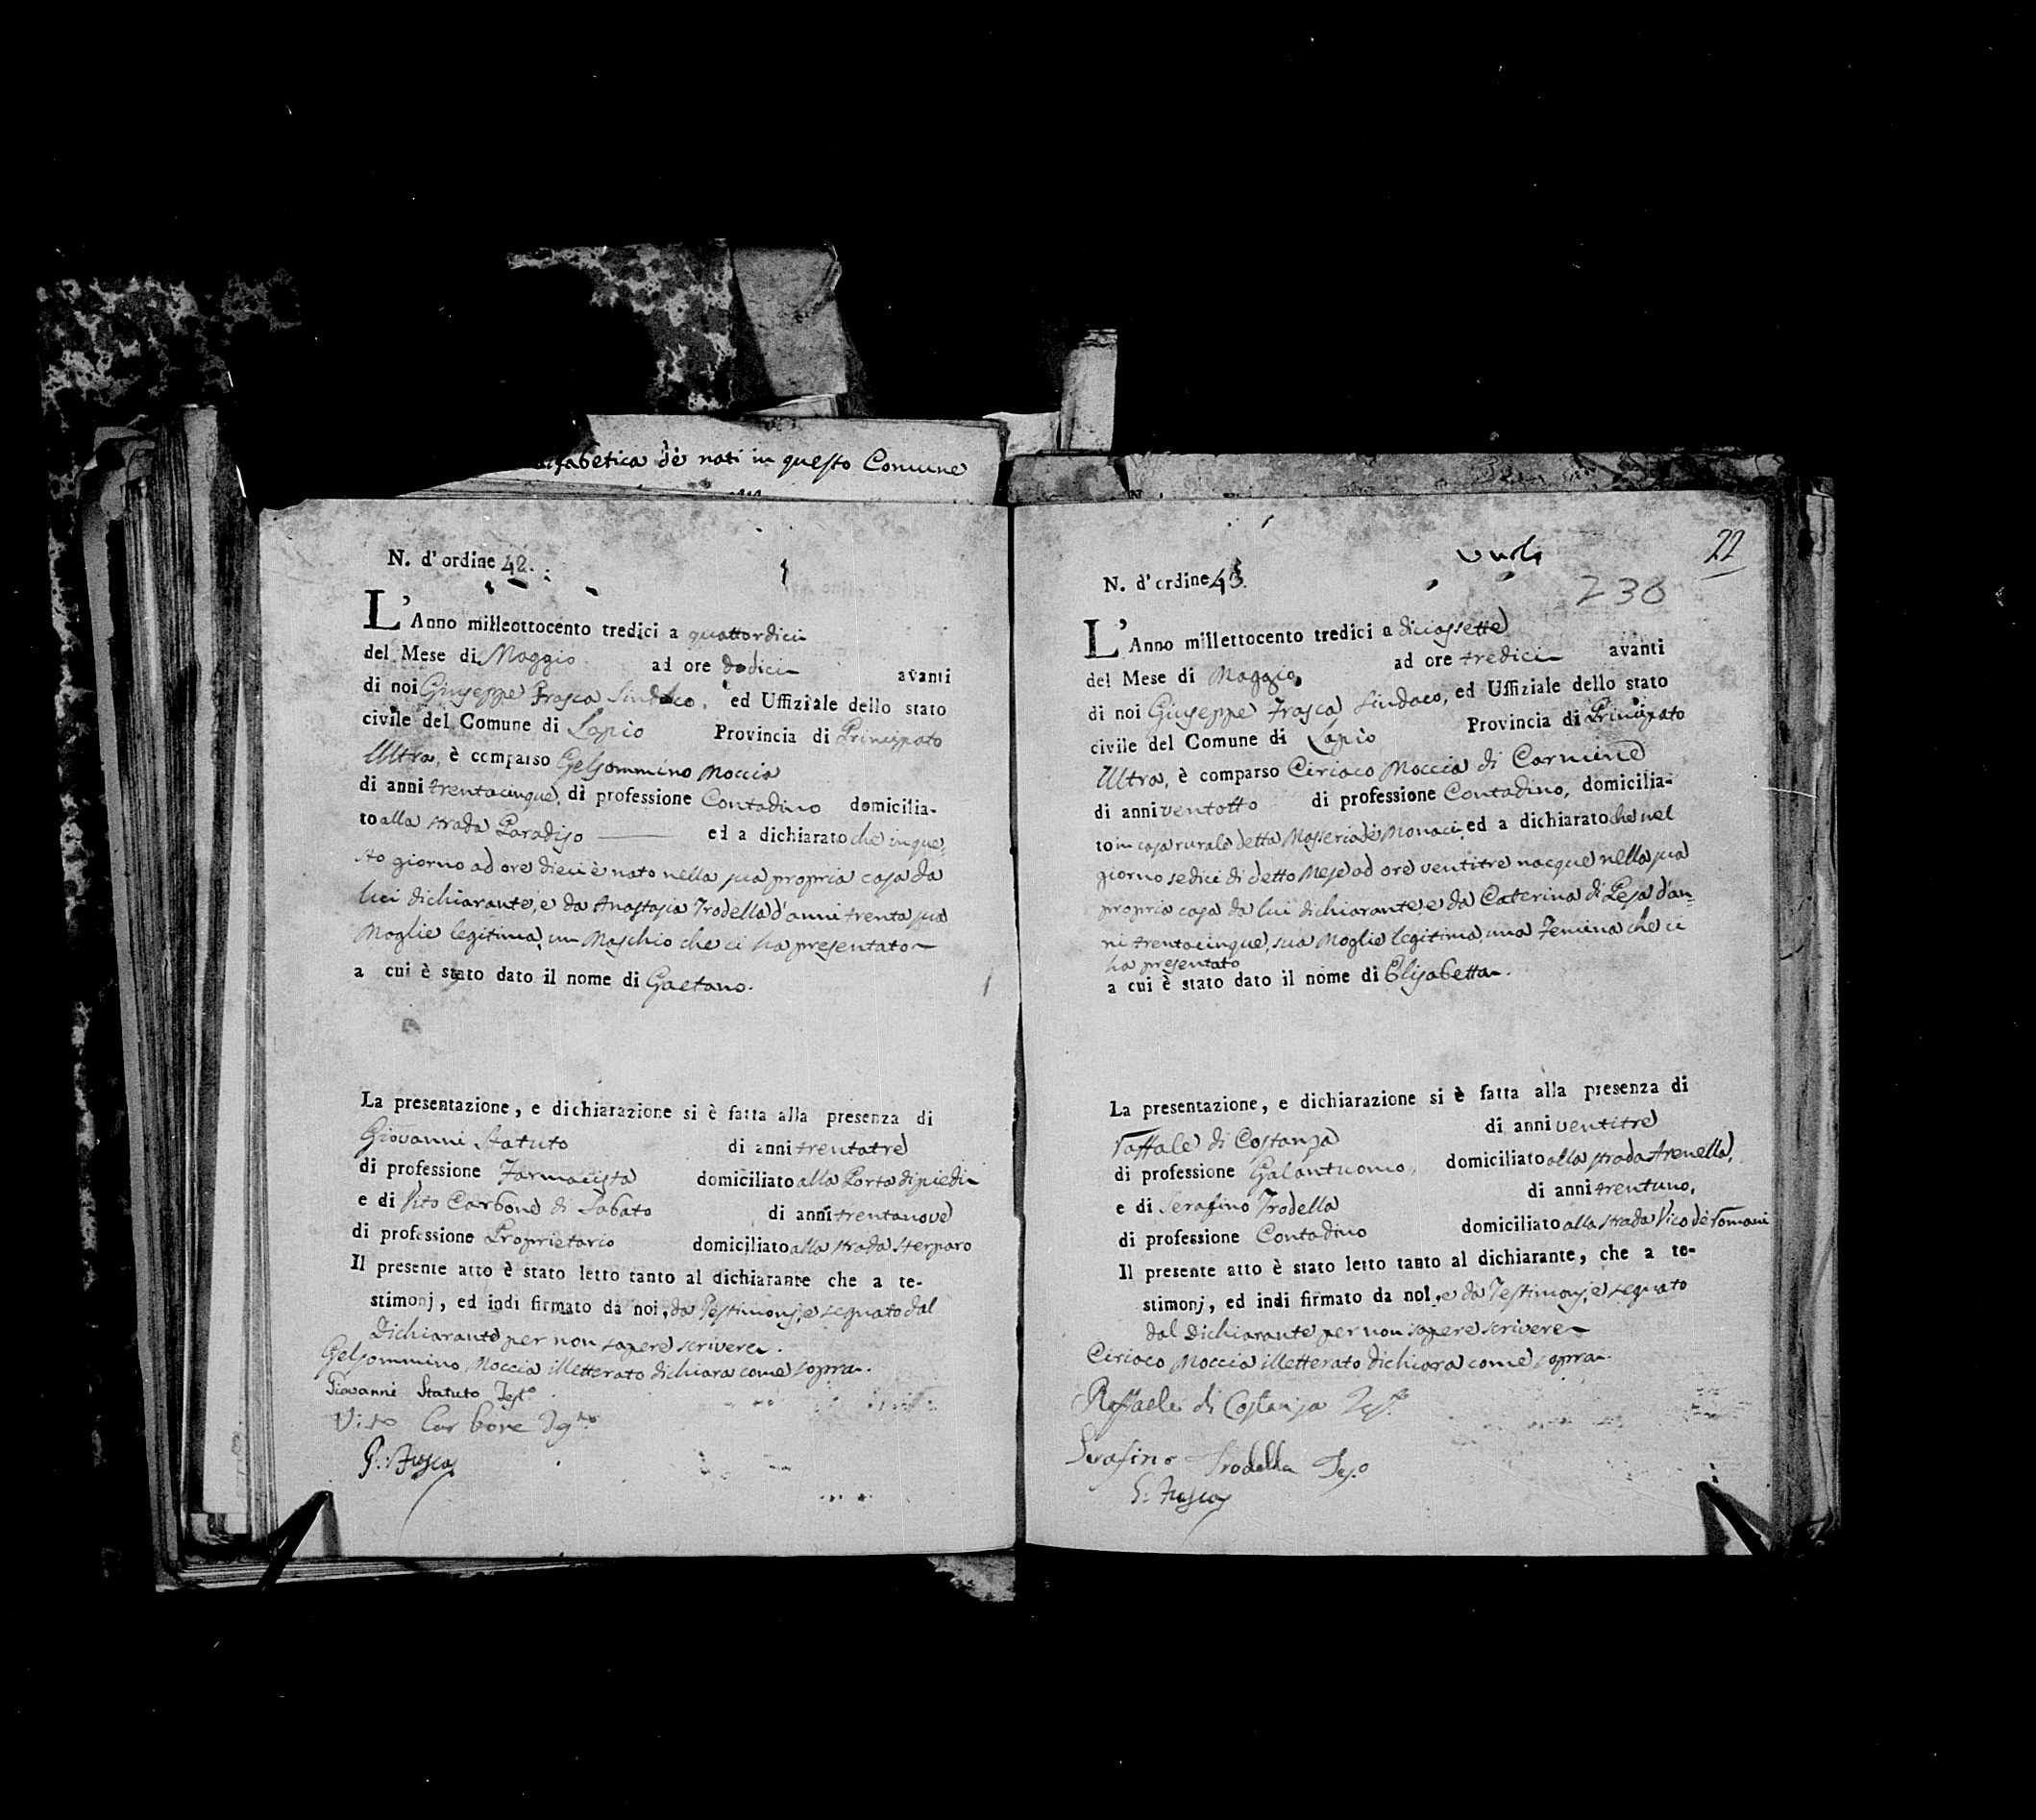 alfabetica dè nati in questo Comune
N. d'ordine 42.
L'Anno milleottocento tredici a quattordici
del Mese di Maggio ad ore dodici avanti
di noi Giuseppe Frasca Sindaco, ed Uffiziale dello stato
civile del Comune di Lapio Provincia di Principato
Ultra, è comparso Gelsommino Moccia
di anni trentacinque, di professione Contadino domicilia-
to alla strada Paradiso ed a dichiarato che in que-
sto giorno ad ore dieci è nato nella sua propria casa da
lui dichiarante, e da Anastasia Trodella d'anni trenta sua
Moglie legitima, un Maschio che ci ha presentato
a cui è stato dato il nome di Gaetano.
La presentazione, e dichiarazione si è fatta alla presenza di
Giovanni Statuto di anni trentatre
di professione Farmacista domiciliato alla Porta di piedi
e di Vito Carbone di Sabato di anni trentanove
di professione Proprietario domiciliato alla strada Sterparo
Il presente atto è stato letto tanto al dichiarante che a te-
stimonj, ed indi firmato da noi, da Testimonj, e segnato dal
Dichiarante per non sapere scrivere.
Gelsommino Moccia illetterato dichiara come sopra.
Giovanni Statuto Test.o
Vito Carbone
G. Frasca
22
236
N. d'ordine 43.
L'Anno millettocento tredici a diciassette
del Mese di Maggio, ad ore tredici avanti
di noi Giuseppe Frasca Sindaco, ed Uffiziale dello stato
civile del Comune di Lapio Provincia di Principato
Ultra, è comparso Ciriaco Moccia di Carmine
di anni ventotto di professione Contadino, domicilia-
to in casa rurale detta Masseria dè Monaci, ed a dichiarato che nel
giorno sedici di detto Mese ad ore ventitre nacque nella sua
propria casa da lui dichiarante, e da Caterina di Pesa d'an-
ni trentacinque, sua Moglie legitima, una Femina che ci
ha presentato
a cui è stato dato il nome di Elisabetta.
La presentazione, e dichiarazione si è fatta alla presenza di
Raffale di Costanza di anni ventitre
di professione Galantuomo, domiciliato alla strada Arenella,
e di Serafino Trodella di anni trentuno,
di professione Contadino domiciliato alla strada Vico dè Romani
Il presente atto è stato letto tanto al dichiarante, che a te-
stimonj, ed indi firmato da noi, e da Testimonj, e segnato
dal Dichiarante per non sapere scrivere
Ciriaco Moccia illetterato dichiara come sopra.
Raffaele di Costanza Tes.o
Serafino Trodella Tes.o
G. Frasca